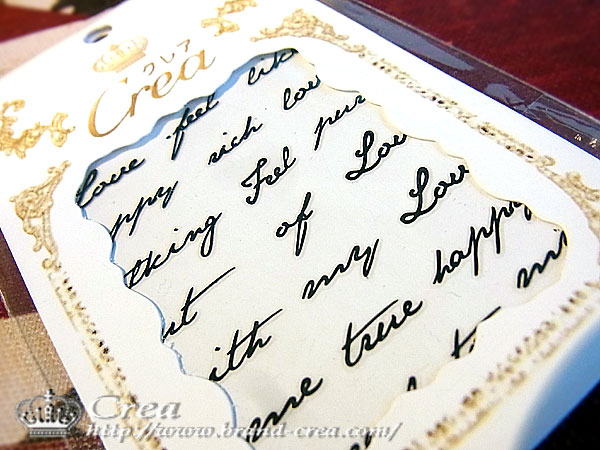 クレア
Crea
Love feel lik
ppy rich lov
lking Feel pur
of Lov
ut my Lov
ith true happy
me to mi
Crea
http://www.brand-crea.com/